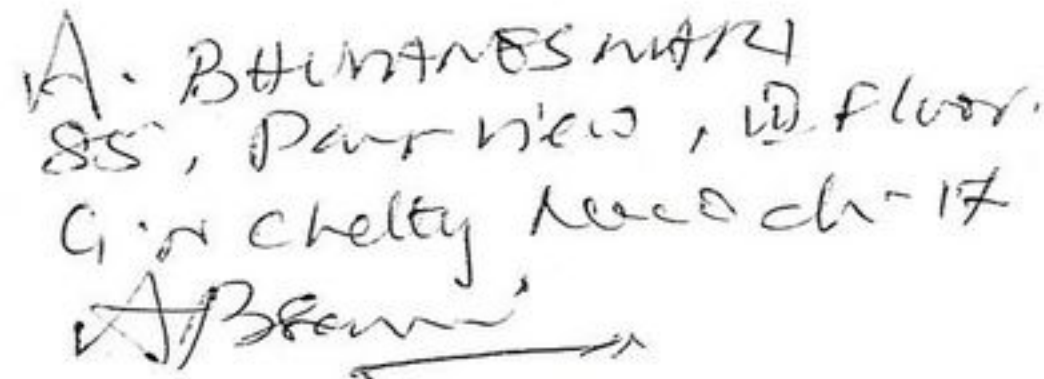 A. BHUVANESWARI
85, Parr View, III Floor.
G.N Chetty Road ch-17